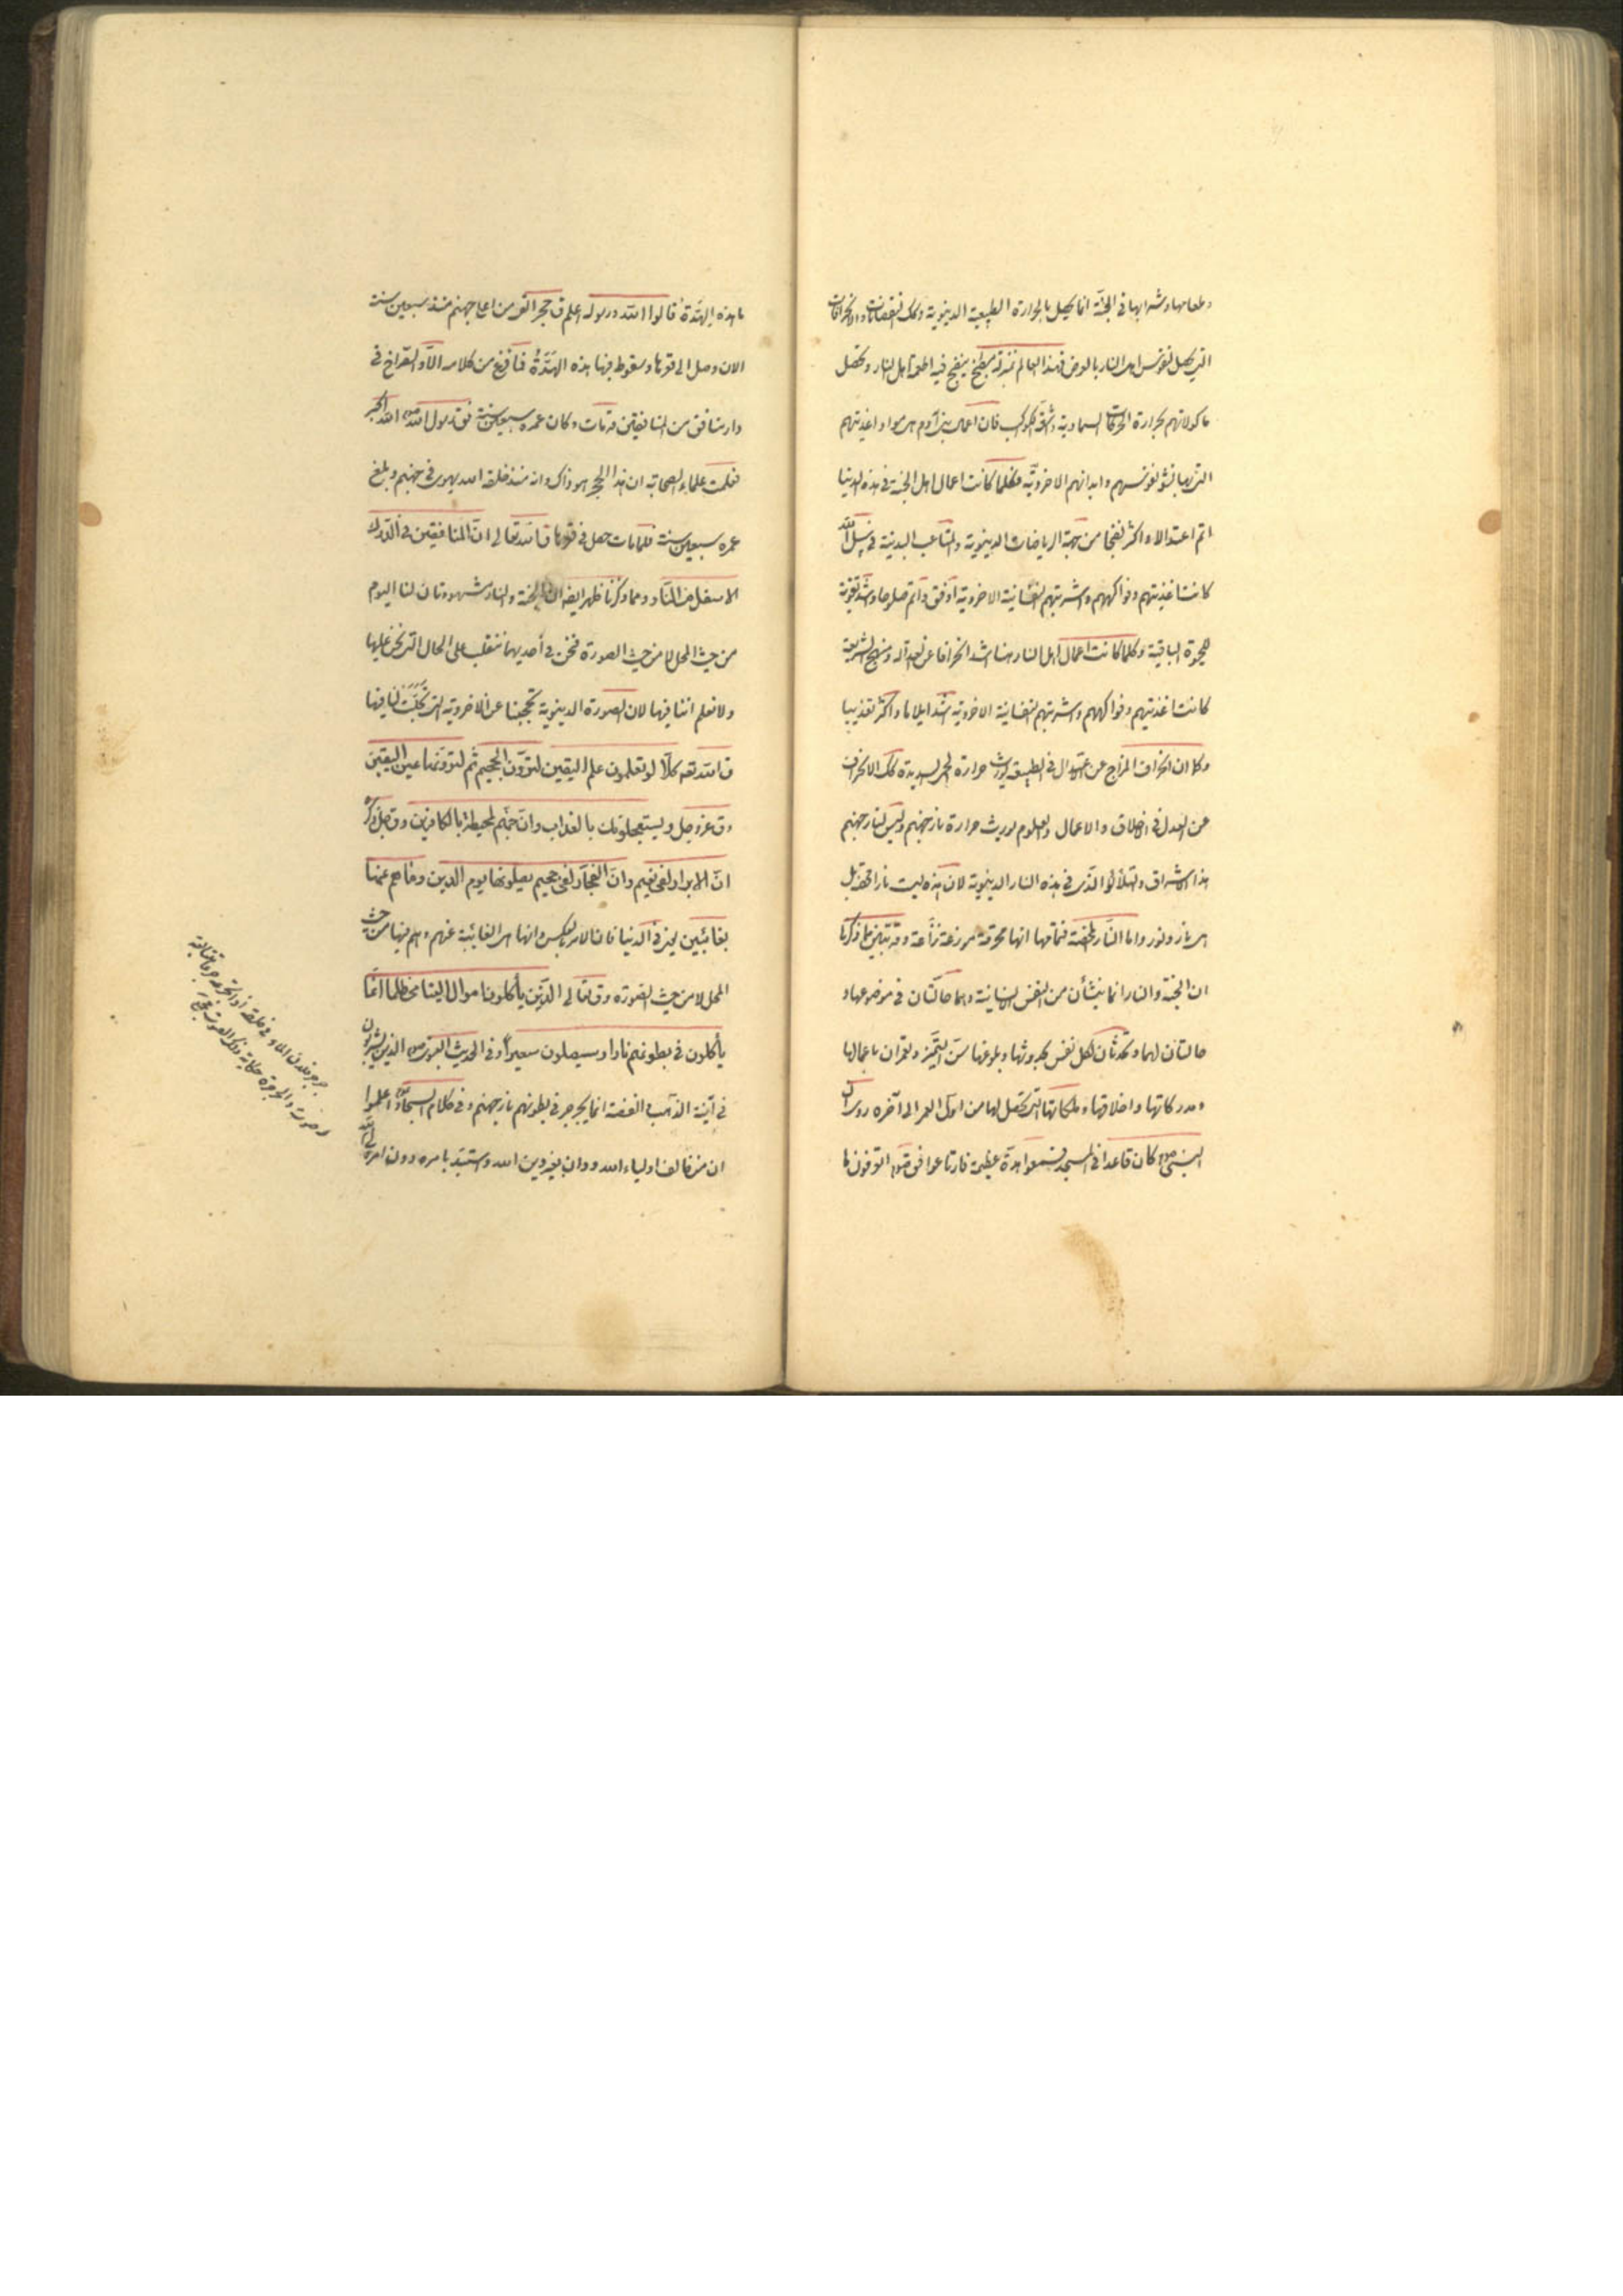 وطعامها وشرابها في الجنة انما يحصل بالحرارة الطبيعية الدنيوية وكذلك النقصانات والانحرافات
التي يحصل لنفوس اهل النار بالعرض فهذا العالم بمنزلة مطبخ ينضج فيه اطعمة اهل النار وتحصل
ماكولاتهم بحرارة الحركات السماوية واشعة الكواكب فان اعمال بني آدم هي مواد اغذيتهم
التي بها نشو نفوسهم وابدانهم الاخروية فكلما كانت اعمال اهل الجنة في هذه الدنيا
اتم اعتدالا واكثر نضجا من جهة الرياضات الدينوية والمتاعب البدنية في سبيل الله
كانت اغذيتهم وفواكههم واشربتهم النفسانية الاخروية اوفق واتم صلوحا واشد تقوية
للحيوة الباقية وكلما كانت اعمال اهل النار هنا اشد انحرافا عن العدالة ومنهج الشريعة
كانت اغذيتهم وفواكههم واشربتهم النفسانية الاخروية اشد ايلاما واكثر تعذيبا
وكما ان انحراف المزاج عن الاعتدال في الطبيعة يورث حرارة الحمى الشديدة كذلك الانحراف
عن العدل في الاخلاق والاعمال والعلوم يورث حرارة نار جهنم وليس لنار جهنم
هذا الاشراق والتلألؤ الذي في هذه النار الدنيوية لان هذه ليست نارا محضة بل
هي نار ونور واما النار المحضة فتمامها انها محرقة موذية نزاعة وقد تبين مما ذكرنا
ان الجنة والنار انما ينشأن من النفس الانسانية وهما حالتان في موضوعهما و
حالتان لها وتحدثان لكل نفس بحدوثها وبلوغها سن التميز وتعمران باعمالها
ومدركاتها واخلاقها وملكاتها التي تحصل لها من اول العمر الى آخره روى ان
النبي ص كان قاعدا في المسجد فسمعوا هدة عظيمة فارتاعوا فقال ص اتعرفون ما
ما هذه الهدة قالوا الله ورسوله اعلم ق حجر القى من اعلى جهنم منذ سبعين سنة
الان وصل الى قعرها وسقوطه فيها هذه الهدة فما فرغ من كلامه الا والصراخ في
دار منافق من المنافقين قد مات وكان عمره سبعين سنة فق رسول الله ص الله اكبر
فعلمت علماء الصحابة ان هذا الحجر هو ذاك وانه منذ خلقه الله يهوى في جهنم وبلغ
عمره سبعين سنة فلما مات حصل في قعرها ق الله تعالى ان المنافقين في الدرك
الاسفل من النار ومما ذكرنا ظهر ايضا ان الجنة والنار مشهودتان لنا اليوم
من حيث المحل لا من حيث الصورة فنحن في أحديهما نتقلب على الحال التي نحن عليها
ولا نعلم اننا فيها لان الصورة الدنيوية تحجبنا عن الاخروية التي تجلت لنا فيها
ق الله تعه كلا لو تعلمون علم اليقين لترون الجحيم ثم لترونها عين اليقين
وق عز وجل ويستعجلونك بالعذاب وان جهنم لمحيطة بالكافرين وق جل ذكره
ان الابرار لفى نعيم وان الفجار لفى جحيم يصلونها يوم الدين وما هم عنها
بغائبين يعنى في الدنيا فان الامر بالعكس وانها هي الغائبة عنهم وهم فيها من حيث
المحل لا من حيث الصورة وق تعالى الذين يأكلون اموال اليتامى ظلما انما
يأكلون في بطونهم نارا وسيصلون سعيرا وفى الحديث النبوي ص الذين يشربون
في آنية الذهب والفضة انما يجرجر في بطونهم نار جهنم وفي كلام السجاد ع اعلموا
ان من خالف اولياء الله ودان بغير دين الله واستبد بامره دون امر ولي الله